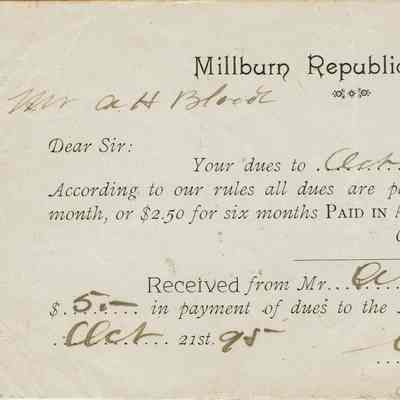 Millburn Republic
Mr A H Blood
Dear Sir:
Your dues to Oct
According to our rules all dues are p
month, or $2.50 for six months PAID IN
Received from Mr. A
$ 5.- in payment of dues to the
Oct 21st. 95